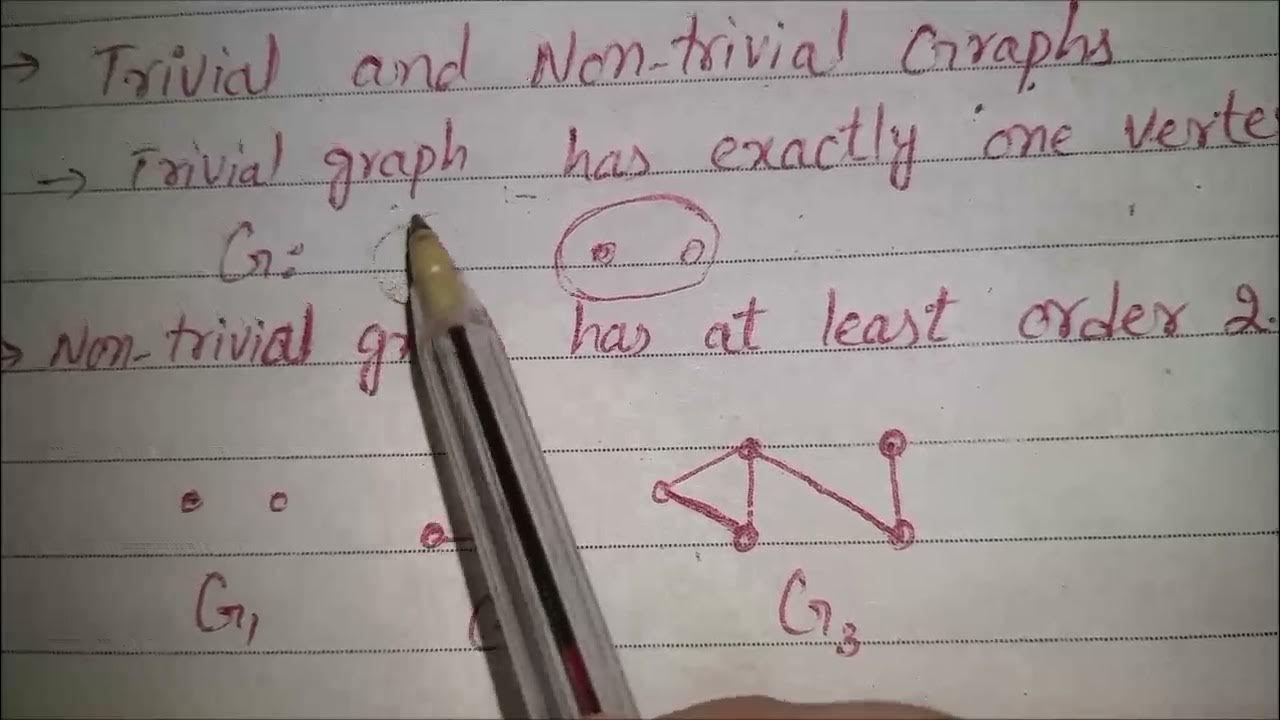 → Trivial and Non-trivial Graphs
→ Trivial graph has exactly one verte
G:
→ Non-trivial gr has at least order 2.
G₁ G₃